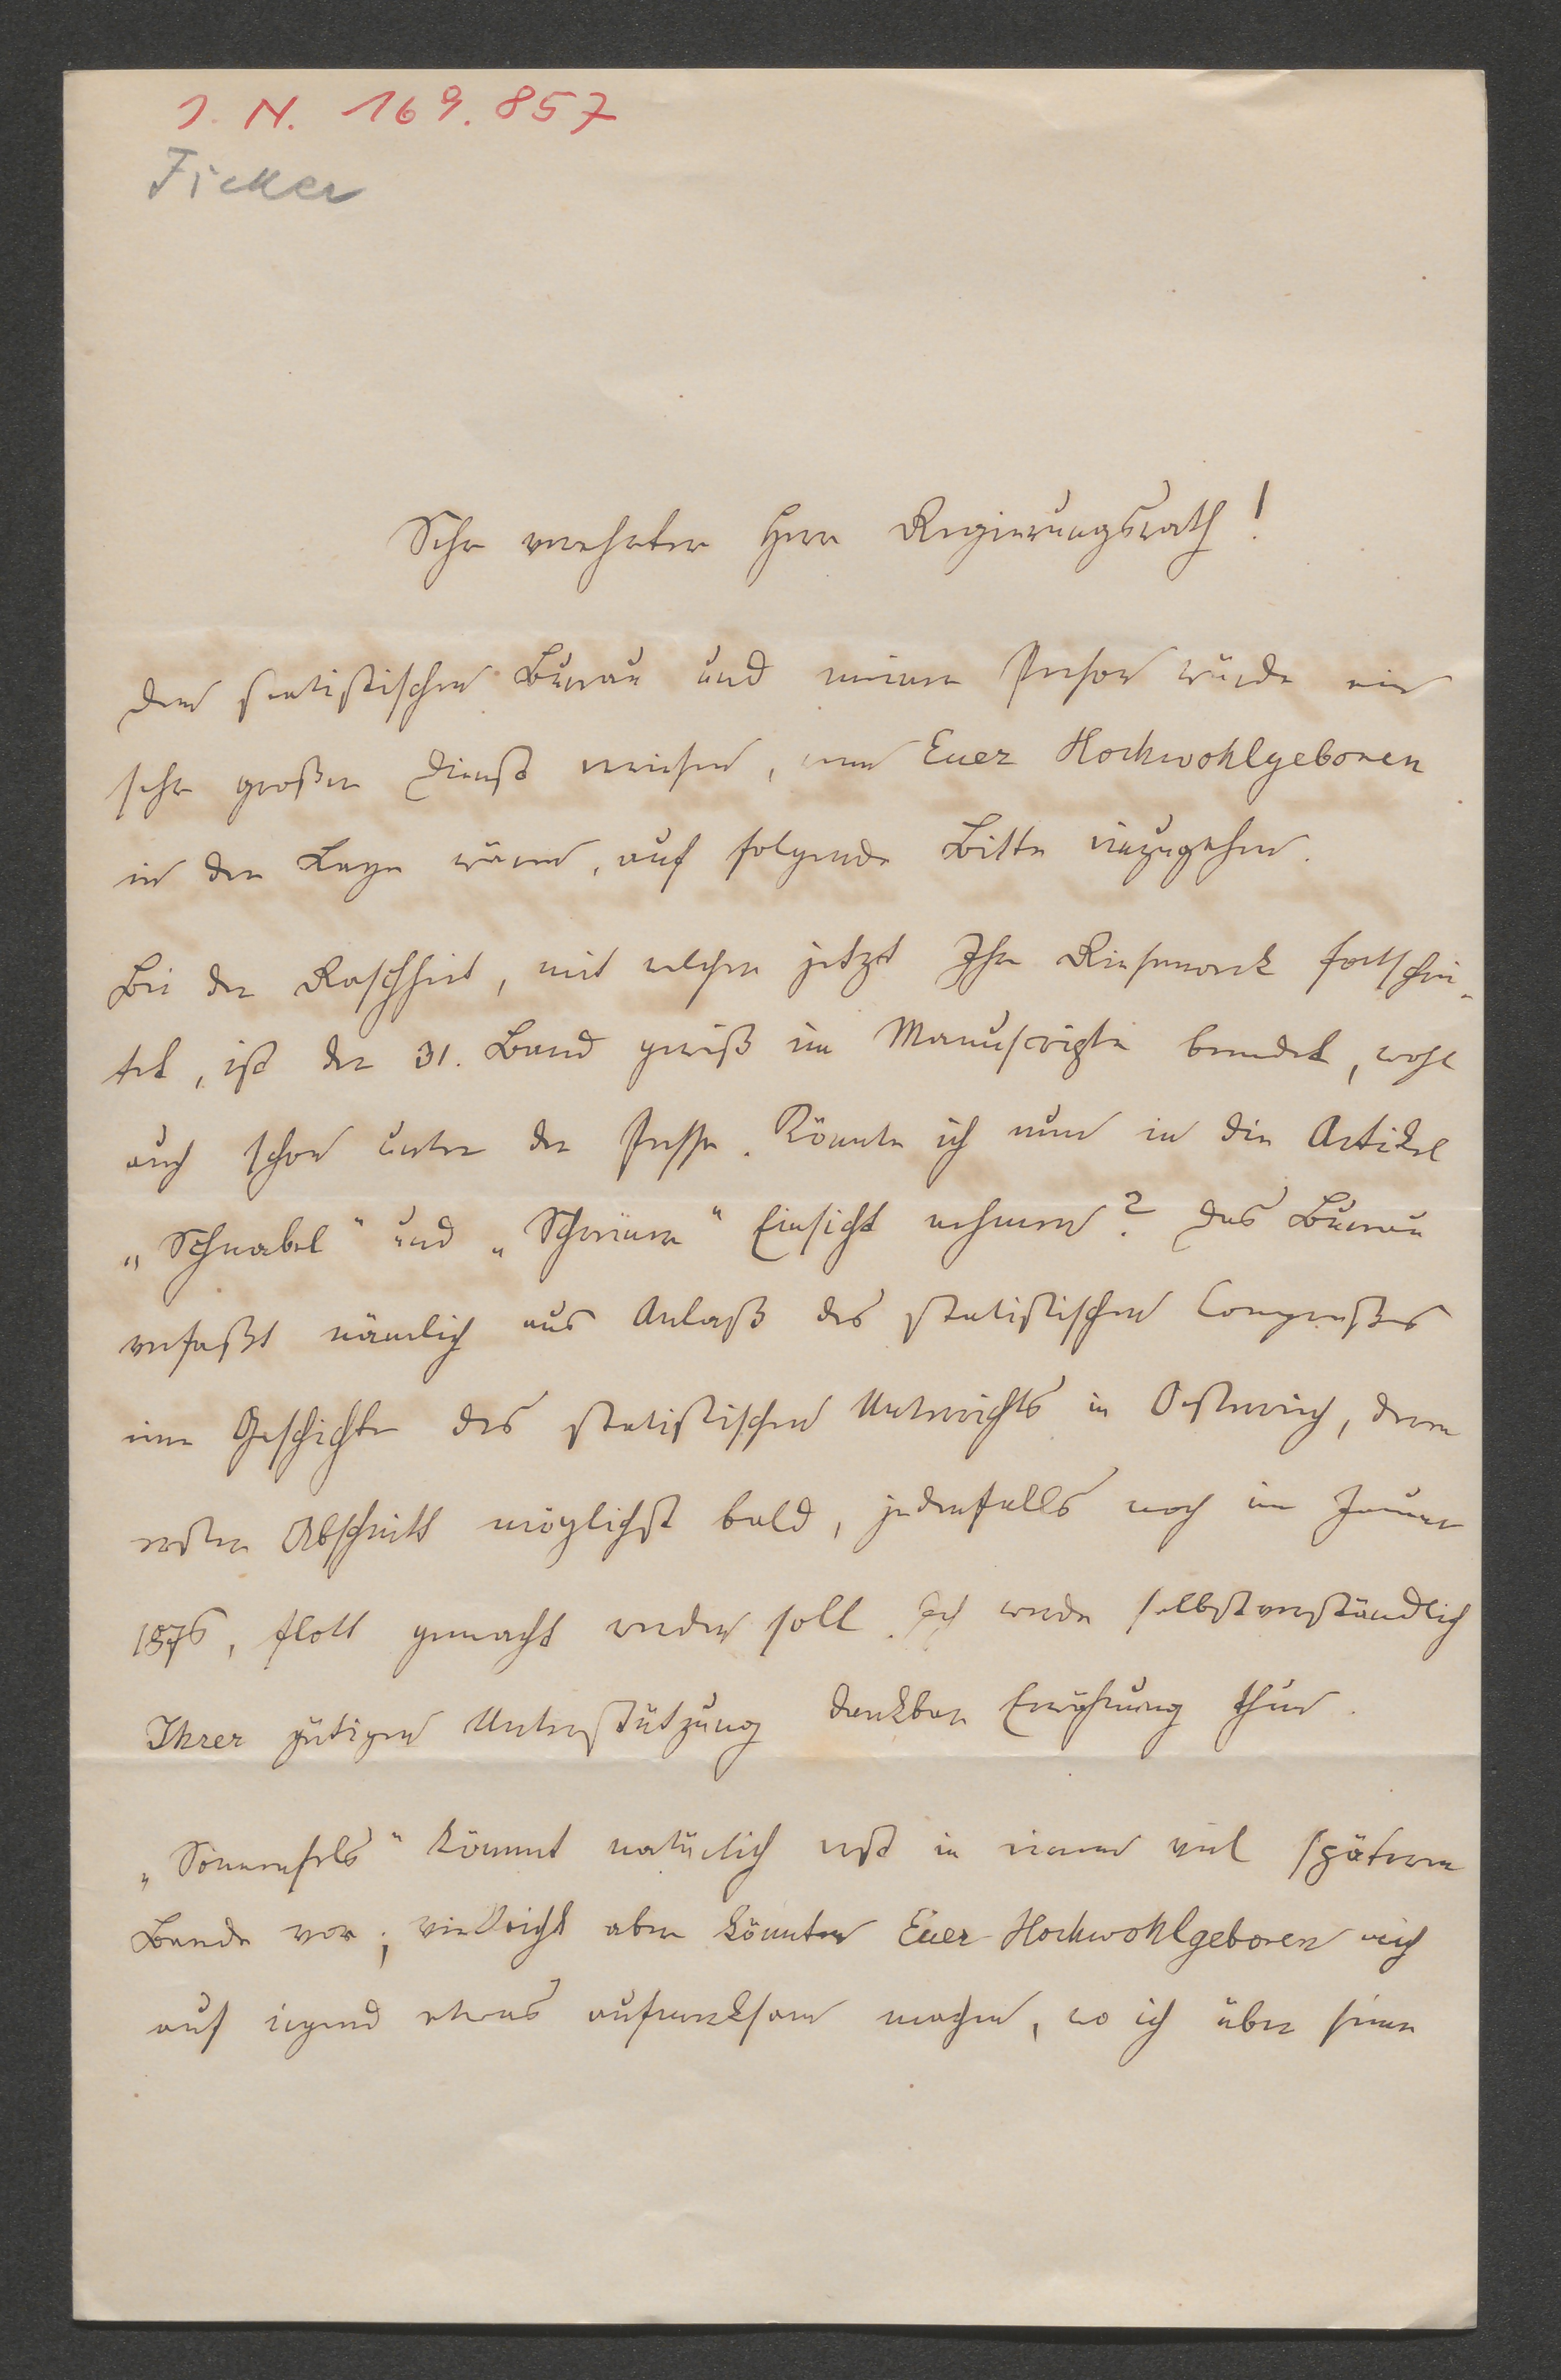 I. N. 169.857
Ficker
Sehr verehrter Herr Regierungsrath!
Dem statistischen Bureau und meiner Person würde ein
sehr großer Dienst erwiesen, wenn Euer Hochwohlgeboren
in der Lage wären, auf folgende Bitte einzugehen.
Bei der Raschheit, mit welcher jetzt Ihr Riesenwerk fortschrei-
tet, ist der 31. Band gewiß im Manuscripte beendet, wohl
auch schon unter der Presse. Könnte ich nun in die Artikel
„Schnabel" und „Schwimmer" Einsicht nehmen? Das Bureau
verfaßt nämlich aus Anlaß des statistischen Congreßes
eine Geschichte des statistischen Unterrichts in Oesterreich, deren
erster Abschnitt möglichst bald, jedenfalls noch im Januar
1876, flott gemacht werden soll. Ich werde selbstverständlich
Ihrer gütigen Unterstützung dankbar Erwähnung thun.
„Sonnenfels" kömmt natürlich erst in einem viel späteren
Bande vor; vielleicht aber könnten Euer Hochwohlgeboren mich
auf irgend etwas aufmerksam machen, wo ich über seine